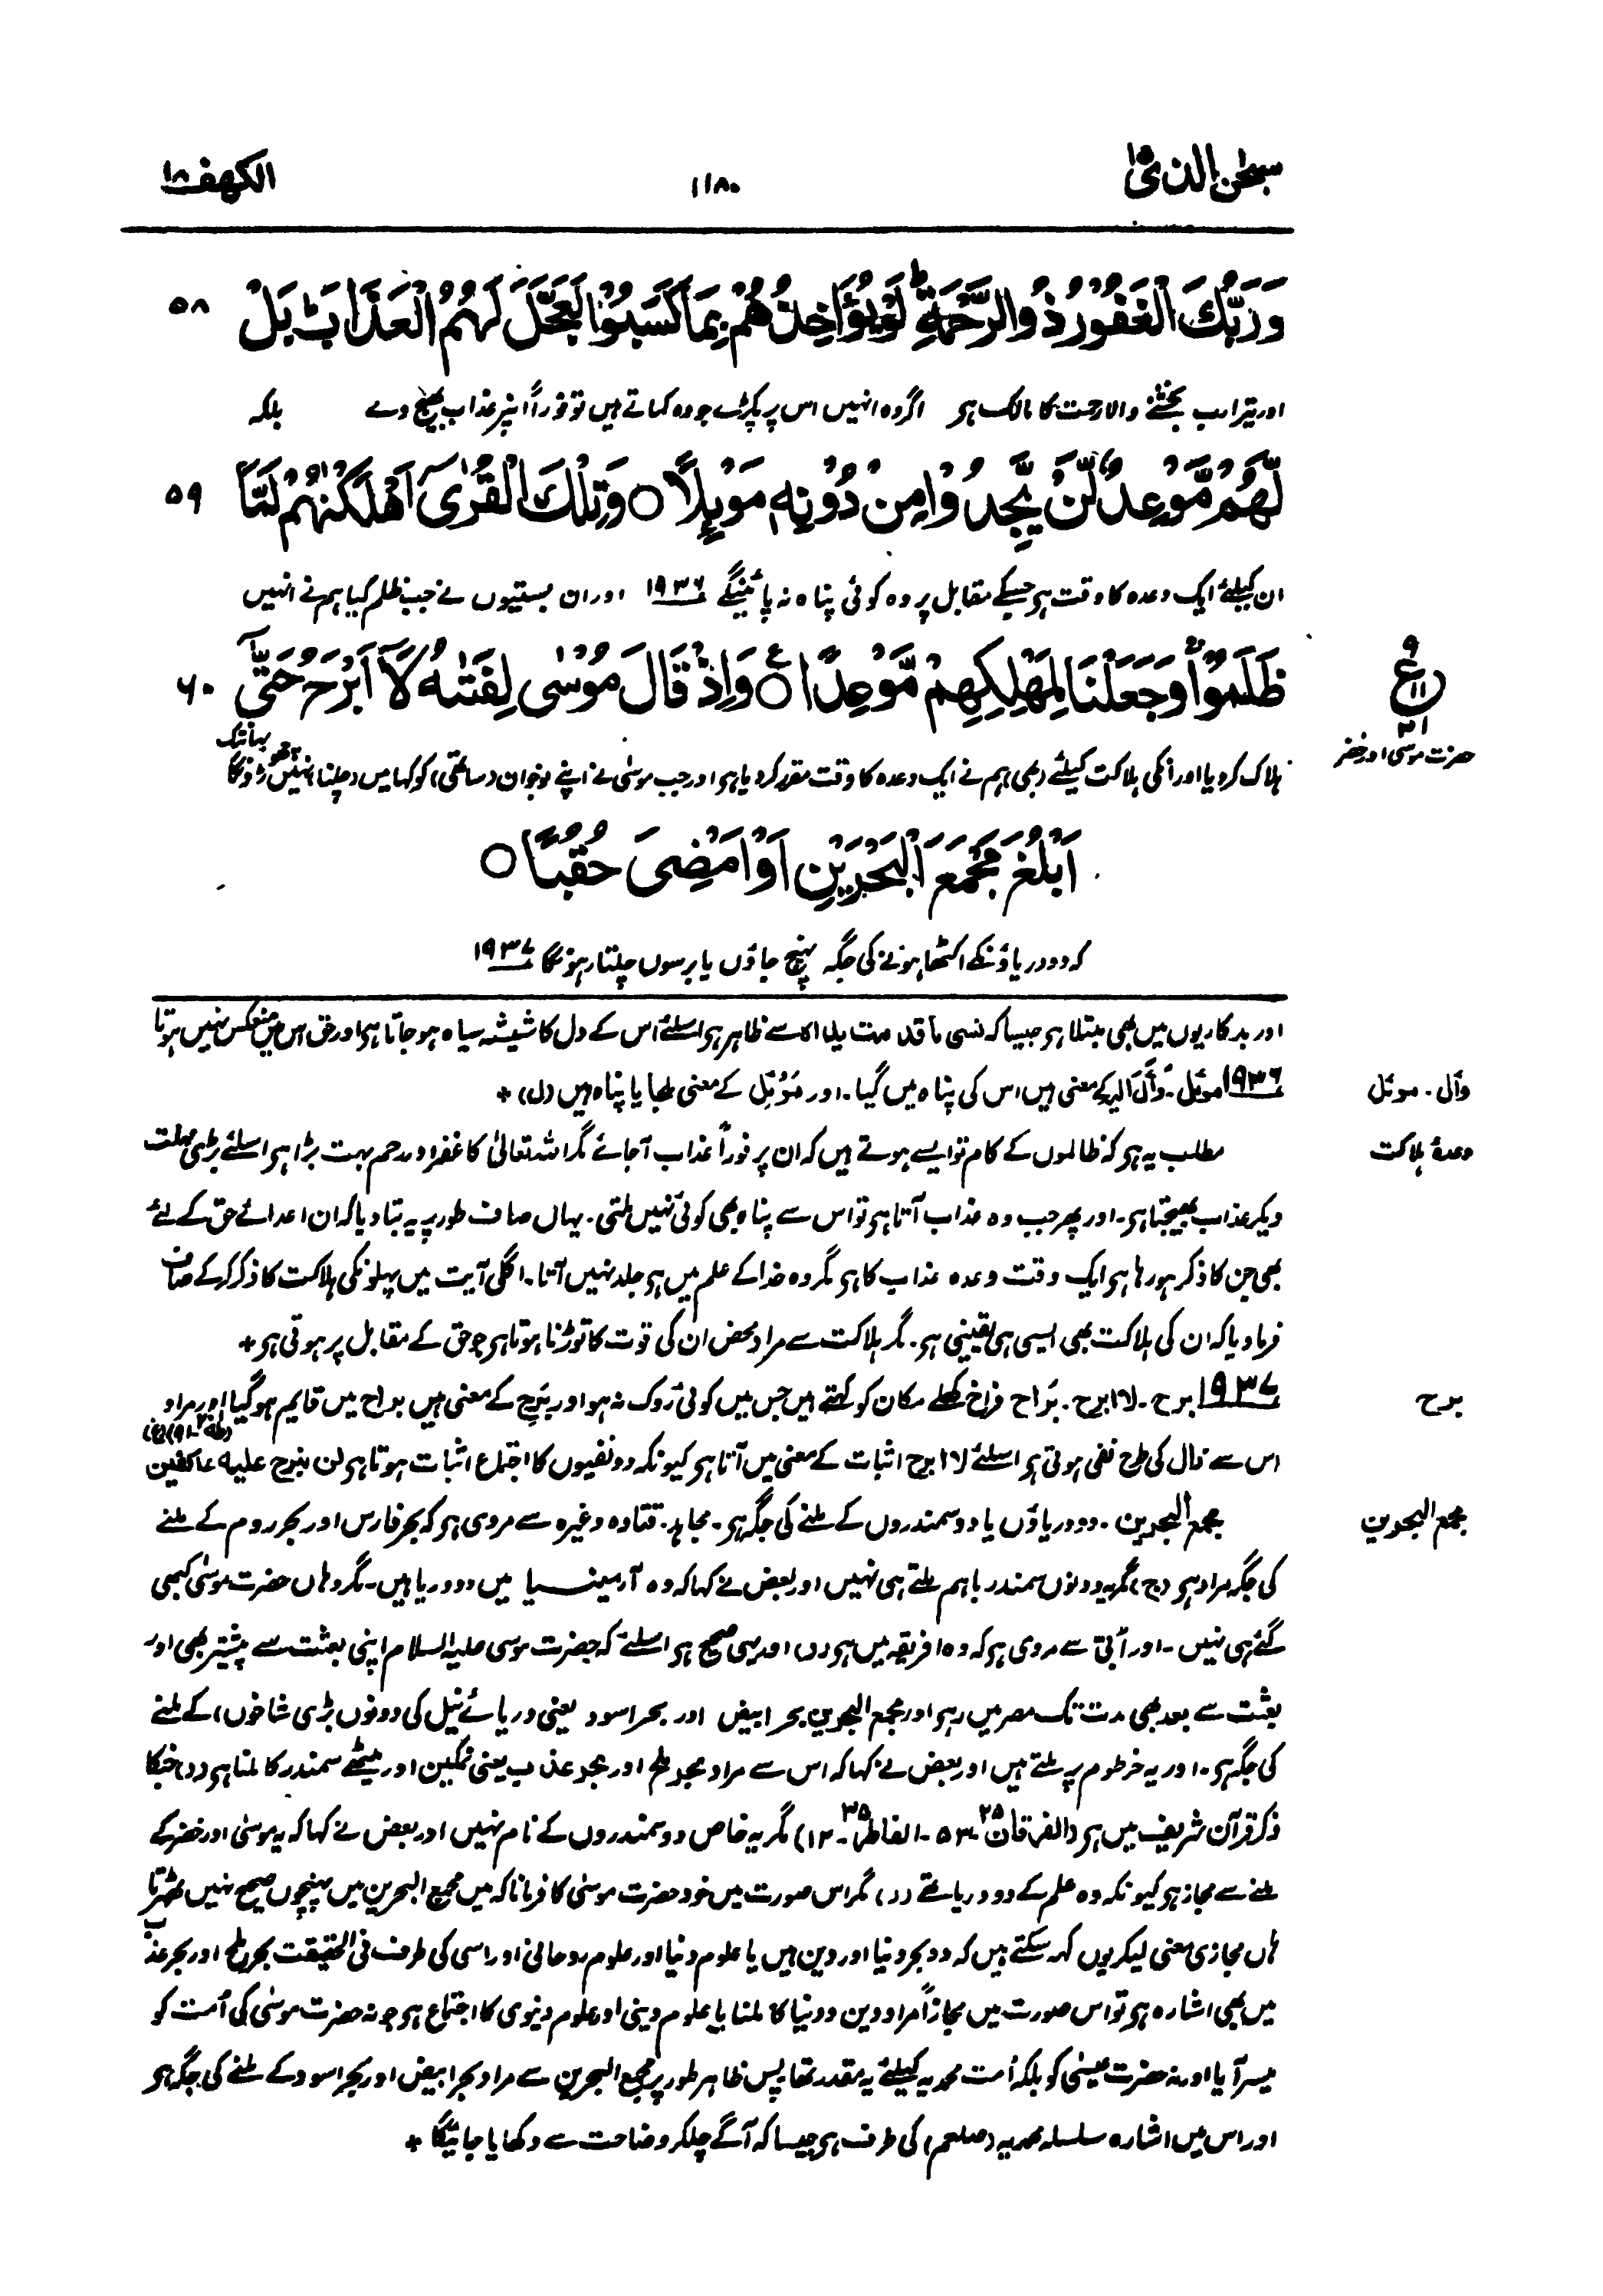 سبحٰن الذی ۱۵
۱۱۸۰
الکہف ۱۸
وَرَبُّكَ الْغَفُوْرُ ذُو الرَّحْمَةِ ؕ لَوْ يُؤَاخِذُهُمْ بِمَا كَسَبُوْا لَعَجَّلَ لَهُمُ الْعَذَابَ ؕ بَلْ ۵۸
اور تیرا رب بخشنے والا رحمت کا مالک ہے اگر وہ انہیں اس پر پکڑے جو وہ کماتے ہیں تو فوراً انپر عذاب بھیج دے بلکہ
لَّهُمْ مَّوْعِدٌ لَّنْ يَّجِدُوْا مِنْ دُوْنِهٖ مَوْىِٕلًا ○ وَتِلْكَ الْقُرٰۤى اَهْلَكْنٰهُمْ لَمَّا ۵۹
ان کیلئے ایک وعدہ کا وقت ہے جسکے مقابل پر وہ کوئی پناہ نہ پائینگے ۱۹۳۶ اور ان بستیوں نے جب ظلم کیا ہم نے انہیں
ظَلَمُوْا وَجَعَلْنَا لِمَهْلِكِهِمْ مَّوْعِدًا ○ ع وَاِذْ قَالَ مُوْسٰى لِفَتٰىهُ لَاۤ اَبْرَحُ حَتّٰۤى ۶۰
۹
ع
۱۱
۲۱
حضرت موسیٰ اور خضر
ہلاک کر دیا اور انکی ہلاکت کیلئے (بھی) ہم نے ایک وعدہ کا وقت مقرر کر دیا ہے اور جب موسیٰ نے اپنے نوجوان (ساتھی) کو کہا میں (چلنا) نہیں چھوڑونگا یہانتک
اَبْلُغَ مَجْمَعَ الْبَحْرَيْنِ اَوْ اَمْضِىَ حُقُبًا ○
کہ دو دریاؤنکے اکٹھا ہونے کی جگہ پہنچ جاؤں یا برسوں چلتا رہونگا ۱۹۳۷
اور بدکاریوں میں بھی مبتلا ہے جیسا کہ نسی ما قدمت یداہ سے ظاہر ہے اسلئے اس کے دل کا شیشہ سیاہ ہو جاتا ہے اور حق اس میں منعکس نہیں ہوتا
وأل ۔ موئل
۱۹۳۶ موئل ۔ وَأَلَ الیہ کے معنی ہیں اس کی پناہ میں گیا ۔ اور مَوْئِل کے معنی ملجا یا پناہ ہیں (ل) +
وعدۂ ہلاکت
مطلب یہ ہے کہ ظالموں کے کام تو ایسے ہوتے ہیں کہ ان پر فوراً عذاب آ جائے مگر اللہ تعالیٰ کا غفر اور رحم بہت بڑا ہے اسلئے بڑی مہلت
دیکر عذاب بھیجتا ہے ۔ اور پھر جب وہ عذاب آتا ہے تو اس سے پناہ بھی کوئی نہیں ملتی ۔ یہاں صاف طور پر یہ بتا دیا کہ ان اعدائے حق کے لئے
بھی جن کا ذکر ہو رہا ہے ایک وقت وعدہ عذاب کا ہے مگر وہ خدا کے علم میں ہے جلد نہیں آتا ۔ اگلی آیت میں پہلونکی ہلاکت کا ذکر کر کے صاف
فرما دیا کہ ان کی ہلاکت بھی ایسی ہی یقینی ہے ۔ مگر ہلاکت سے مراد محض ان کی قوت کا توڑنا ہوتا ہے جو حق کے مقابل پر ہوتی ہے +
برح
۱۹۳۷ برح ۔ لا ابرح ۔ بَراح فراخ کھلے مکان کو کہتے ہیں جس میں کوئی روک نہ ہو اور بَرِحَ کے معنی ہیں براح میں قایم ہو گیا اور مراد
اس سے زال کی طرح نفی ہوتی ہے اسلئے لا ابرح اثبات کے معنی میں آتا ہے کیونکہ دو نفیوں کا اجتماع اثبات ہوتا ہے لن نبرح علیہ عاکفین (طٰہٰ ۲۰-۹۱) (غ)
مجمع البحرین
مجمع البحرین ۔ دو دریاؤں یا دو سمندروں کے ملنے کی جگہ ہے ۔ مجاہد ۔ قتادہ وغیرہ سے مروی ہے کہ بحر فارس اور بحر روم کے ملنے
کی جگہ مراد ہے (ج) مگر یہ دونوں سمندر باہم ملتے ہی نہیں اور بعض نے کہا کہ وہ آرمینیا میں دو دریا ہیں ۔ مگر وہاں حضرت موسیٰ کبھی
گئے ہی نہیں ۔ اور اُبی سے مروی ہے کہ وہ افریقہ میں ہے (د) اور یہی صحیح ہے اسلئے کہ حضرت موسیٰ علیہ السلام اپنی بعثت سے پیشتر بھی اور
بعثت سے بعد بھی مدت تک مصر میں رہے اور مجمع البحرین بحر ابیض اور بحر اسود یعنی دریائے نیل کی دونوں بڑی شاخوں) کے ملنے
کی جگہ ہے ۔ اور یہ خرطوم پر ملتے ہیں اور بعض نے کہا کہ اس سے مراد بحر ملح اور بحر عذب یعنی نمکین اور میٹھے سمندر کا ملنا ہے (د) جنکا
ذکر قرآن شریف میں ہے (الفرقان ۲۵-۵۳ ۔ الفاطر ۳۵-۱۲) مگر یہ خاص دو سمندروں کے نام نہیں اور بعض نے کہا کہ یہ موسیٰ اور خضر کے
ملنے سے مجاز ہے کیونکہ وہ علم کے دو دریا تھے (د) مگر اس صورت میں خود حضرت موسیٰ کا فرمانا کہ میں مجمع البحرین میں پہنچوں صحیح نہیں ٹھہرتا
ہاں مجازی معنی لیکر یوں کہہ سکتے ہیں کہ دو بحر دنیا اور دین ہیں یا علوم دنیا اور علوم روحانی اور اسی کی طرف فی الحقیقت بحر ملح اور بحر عذب
میں بھی اشارہ ہے تو اس صورت میں مجازاً مراد دین و دنیا کا ملنا یا علوم دینی اور علوم دنیوی کا اجتماع ہے جو نہ حضرت موسیٰ کی اُمت کو
میسر آیا اور نہ حضرت عیسیٰ کو بلکہ اُمت محمدیہ کیلئے یہ مقدر تھا پس ظاہر طور پر مجمع البحرین سے مراد بحر ابیض اور بحر اسود کے ملنے کی جگہ ہے
اور اس میں اشارہ سلسلہ محمدیہ (صلعم) کی طرف ہے جیسا کہ آگے چلکر وضاحت سے دکھایا جائیگا +